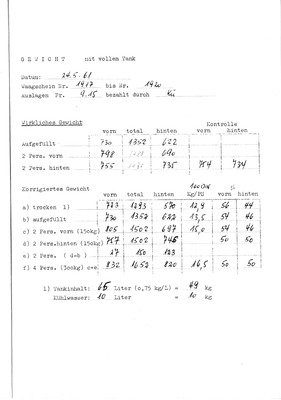 GEWICHT mit vollem Tank
Datum: 24.5.61
Waagschein Nr. 1917 bis Nr. 1920
Auslagen Fr. 9.15 bezahlt durch
Wirkliches Gewicht Kontrolle
vorn total hinten vorn hinten
Aufgefüllt 730 1352 622
2 Pers. vorn 798 690
2 Pers. hinten 755 735 754 734
Korrigiertes Gewicht 100 DIN Kg/PS %
vorn total hinten vorn hinten
a) trocken 1) 723 1293 570 12,9 56 44
b) aufgefüllt 730 1352 622 13,5 54 46
c) 2 Pers. vorn (150kg) 805 1502 697 15,0 54 46
d) 2 Pers.hinten (150kg) 757 1502 745 50 50
e) 2 Pers. (d-b) 27 150 123
f) 4 Pers. (300kg) c+e 832 1652 820 16,5 50 50
1) Tankinhalt: 65 Liter (0,75 kg/L) = 49 kg
Kühlwasser: 10 Liter = 10 kg